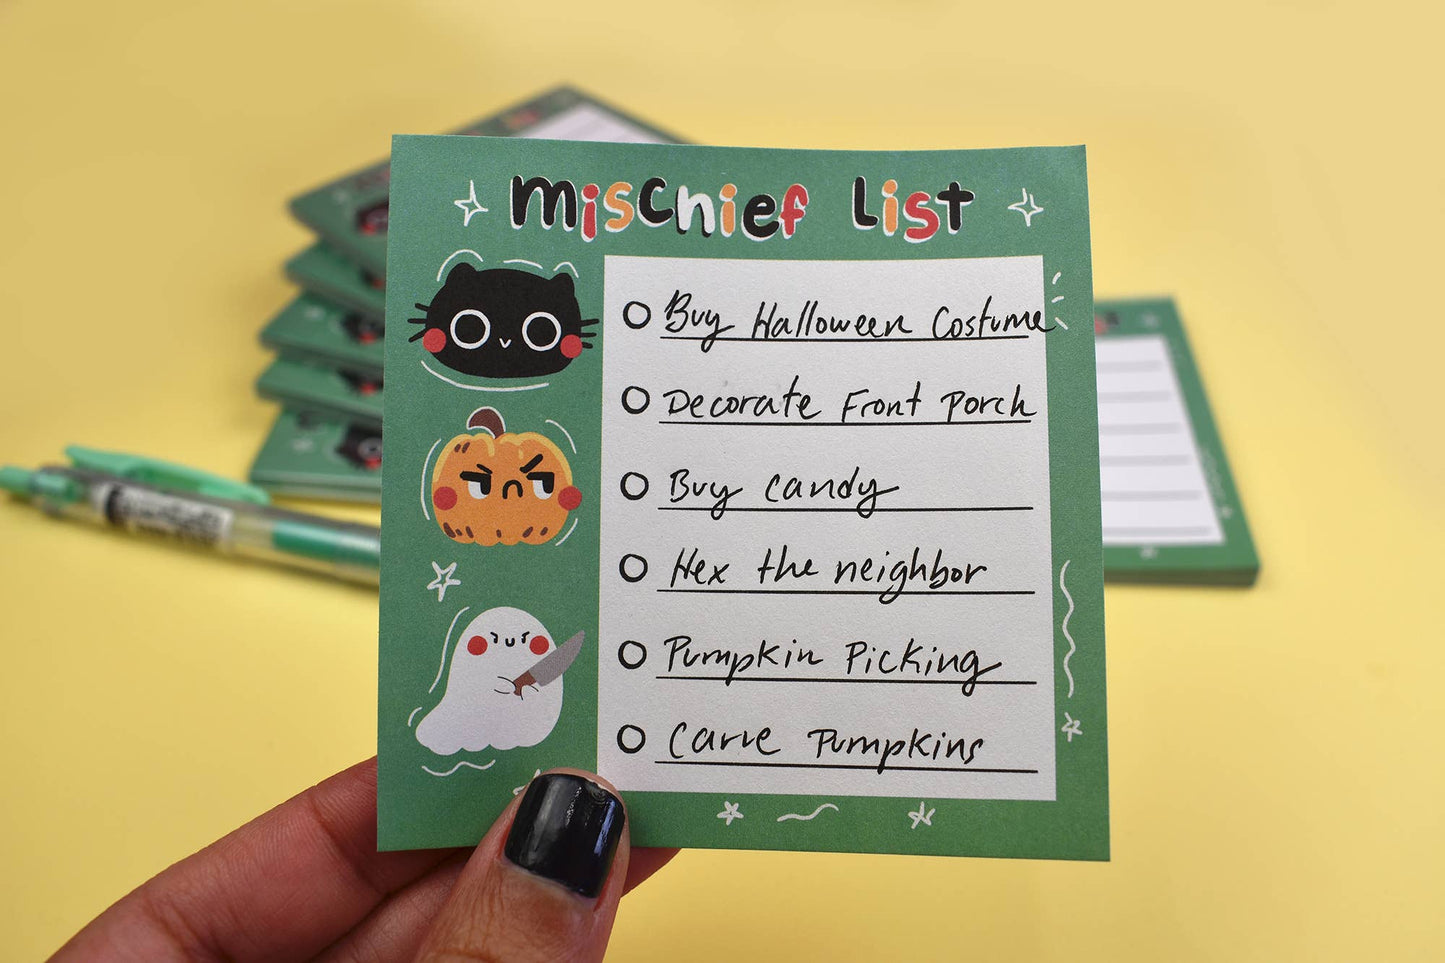 mischief List
Buy Halloween Costume
Decorate Front Porch
Buy candy
Hex the neighbor
Pumpkin Picking
Carve Pumpkins